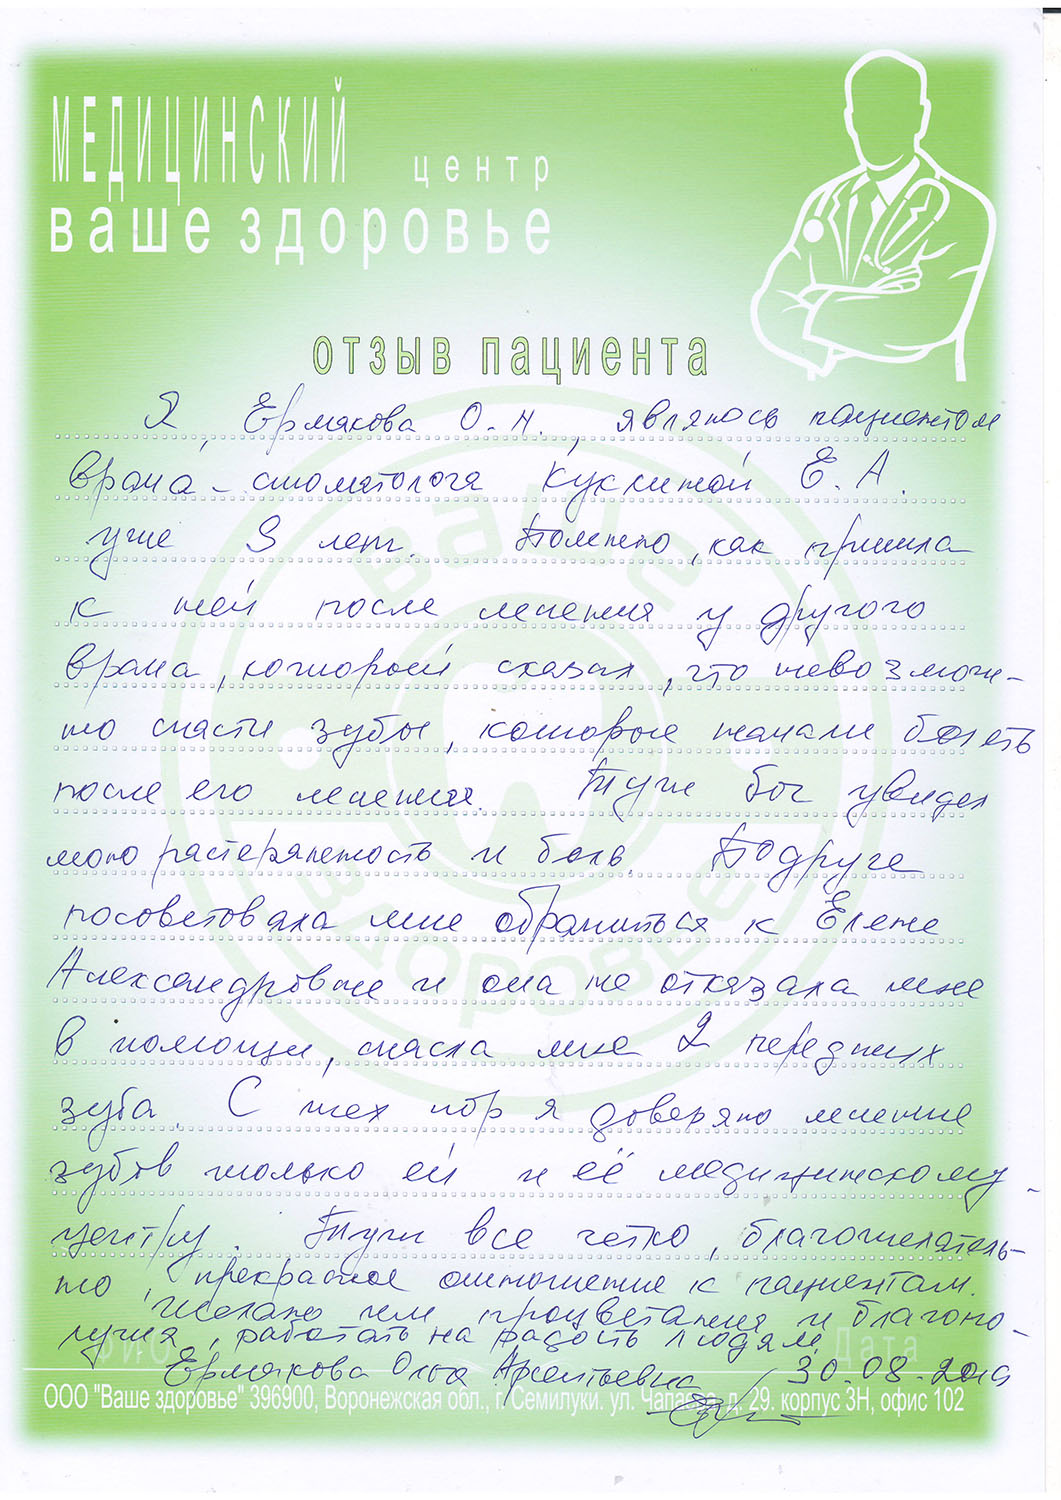 МЕДИЦИНСКИЙ центр
ваше здоровье
отзыв пациента
Я, Ермакова О. Н., являюсь пациентом
врача-стоматолога Куклиной Е. А.
уже 8 лет. Помню, как пришла
к ней после лечения у другого
врача, который сказал, что невозмож-
но спасти зубы, которые начали болеть
после его лечения. Тут бы увидел
мою растерянность и боль. Подруга
посоветовала мне обратиться к Елене
Александровне и она не отказала мне
в помощи, спасла мне 2 передних
зуба. С тех пор я доверяю лечение
зубов только ей и её медицинскому
центру. Тут все четко, благожелатель-
но, прекрасное отношение к пациентам.
Желаю им процветания и благопо-
лучия, работать на радость людям.
Фио Дата
Ермакова Ольга 30.08.2019
ООО "Ваше здоровье" 396900, Воронежская обл., г. Семилуки. ул. Чапаева, д. 29. корпус 3Н, офис 102
Ваше
здоровье